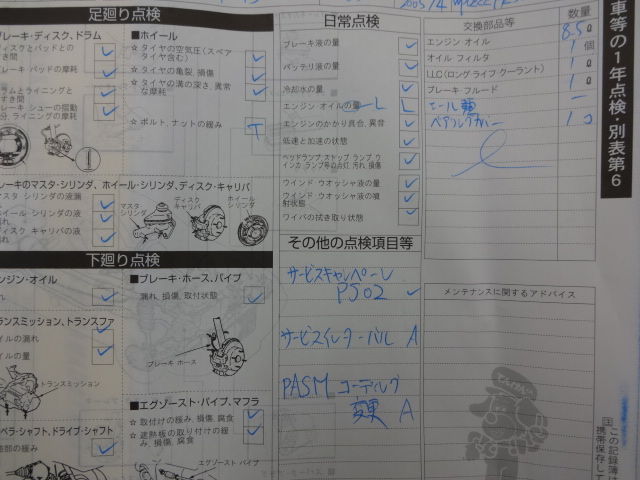 足廻り点検
ブレーキ・ディスク、ドラム
ディスクとパッドとの
すき間
ブレーキ パッドの摩耗
ラムとライニングと
すき間
ーキ シューの摺動
分、ライニングの摩耗
■ホイール
☆ タイヤの空気圧(スペア
タイヤ含む)
☆ タイヤの亀裂、損傷
☆ タイヤの溝の深さ、異常
な摩耗
☆ ボルト、ナットの緩み
T
レーキのマスタ・シリンダ、ホイール・シリンダ、ディスク・キャリパ
マスタ シリンダの液漏
れ
ホイール シリンダの液
漏れ
ディスク キャリパの液
漏れ
マスタ
シリンダ
ディスク
キャリパ
ホイール
シリンダ
下廻り点検
ンジン・オイル
れ
ランスミッション、トランスファ
イルの漏れ
イルの量
トランスミッション
ペラ・シャフト、ドライブ・シャフト
結部の緩み
■ブレーキ・ホース、パイプ
漏れ、損傷、取付状態
ブレーキ ホース
■エグゾースト・パイプ、マフラ
☆ 取付けの緩み、損傷、腐食
☆ 遮熱板の取り付けの緩
み、損傷、腐食
エグゾースト パイプ
日常点検
ブレーキ液の量
バッテリ液の量
冷却水の量
エンジン オイルの量
L
エンジンのかかり具合、異音
低速と加速の状態
ヘッドランプ、ストップ ランプ、ウ
インカ ランプ等の点灯、汚れ、損傷
ウインド・ウオッシャ液の量
ウインド・ウオッシャ液の噴
射状態
ワイパの拭き取り状態
その他の点検項目等
サービスキャンペーン
PJ02
サービスインターバル A
PASM コーディング
変更 A
交換部品等
数量
エンジン オイル
8.5ℓ
オイル フィルタ
1個
LLC(ロング ライフ クーラント)
1ℓ
ブレーキ フルード
1ℓ
ベアリングカバー
1コ
メンテナンスに関するアドバイス
車等の1年点検・別表第6
注 この記録簿は
携帯保存して